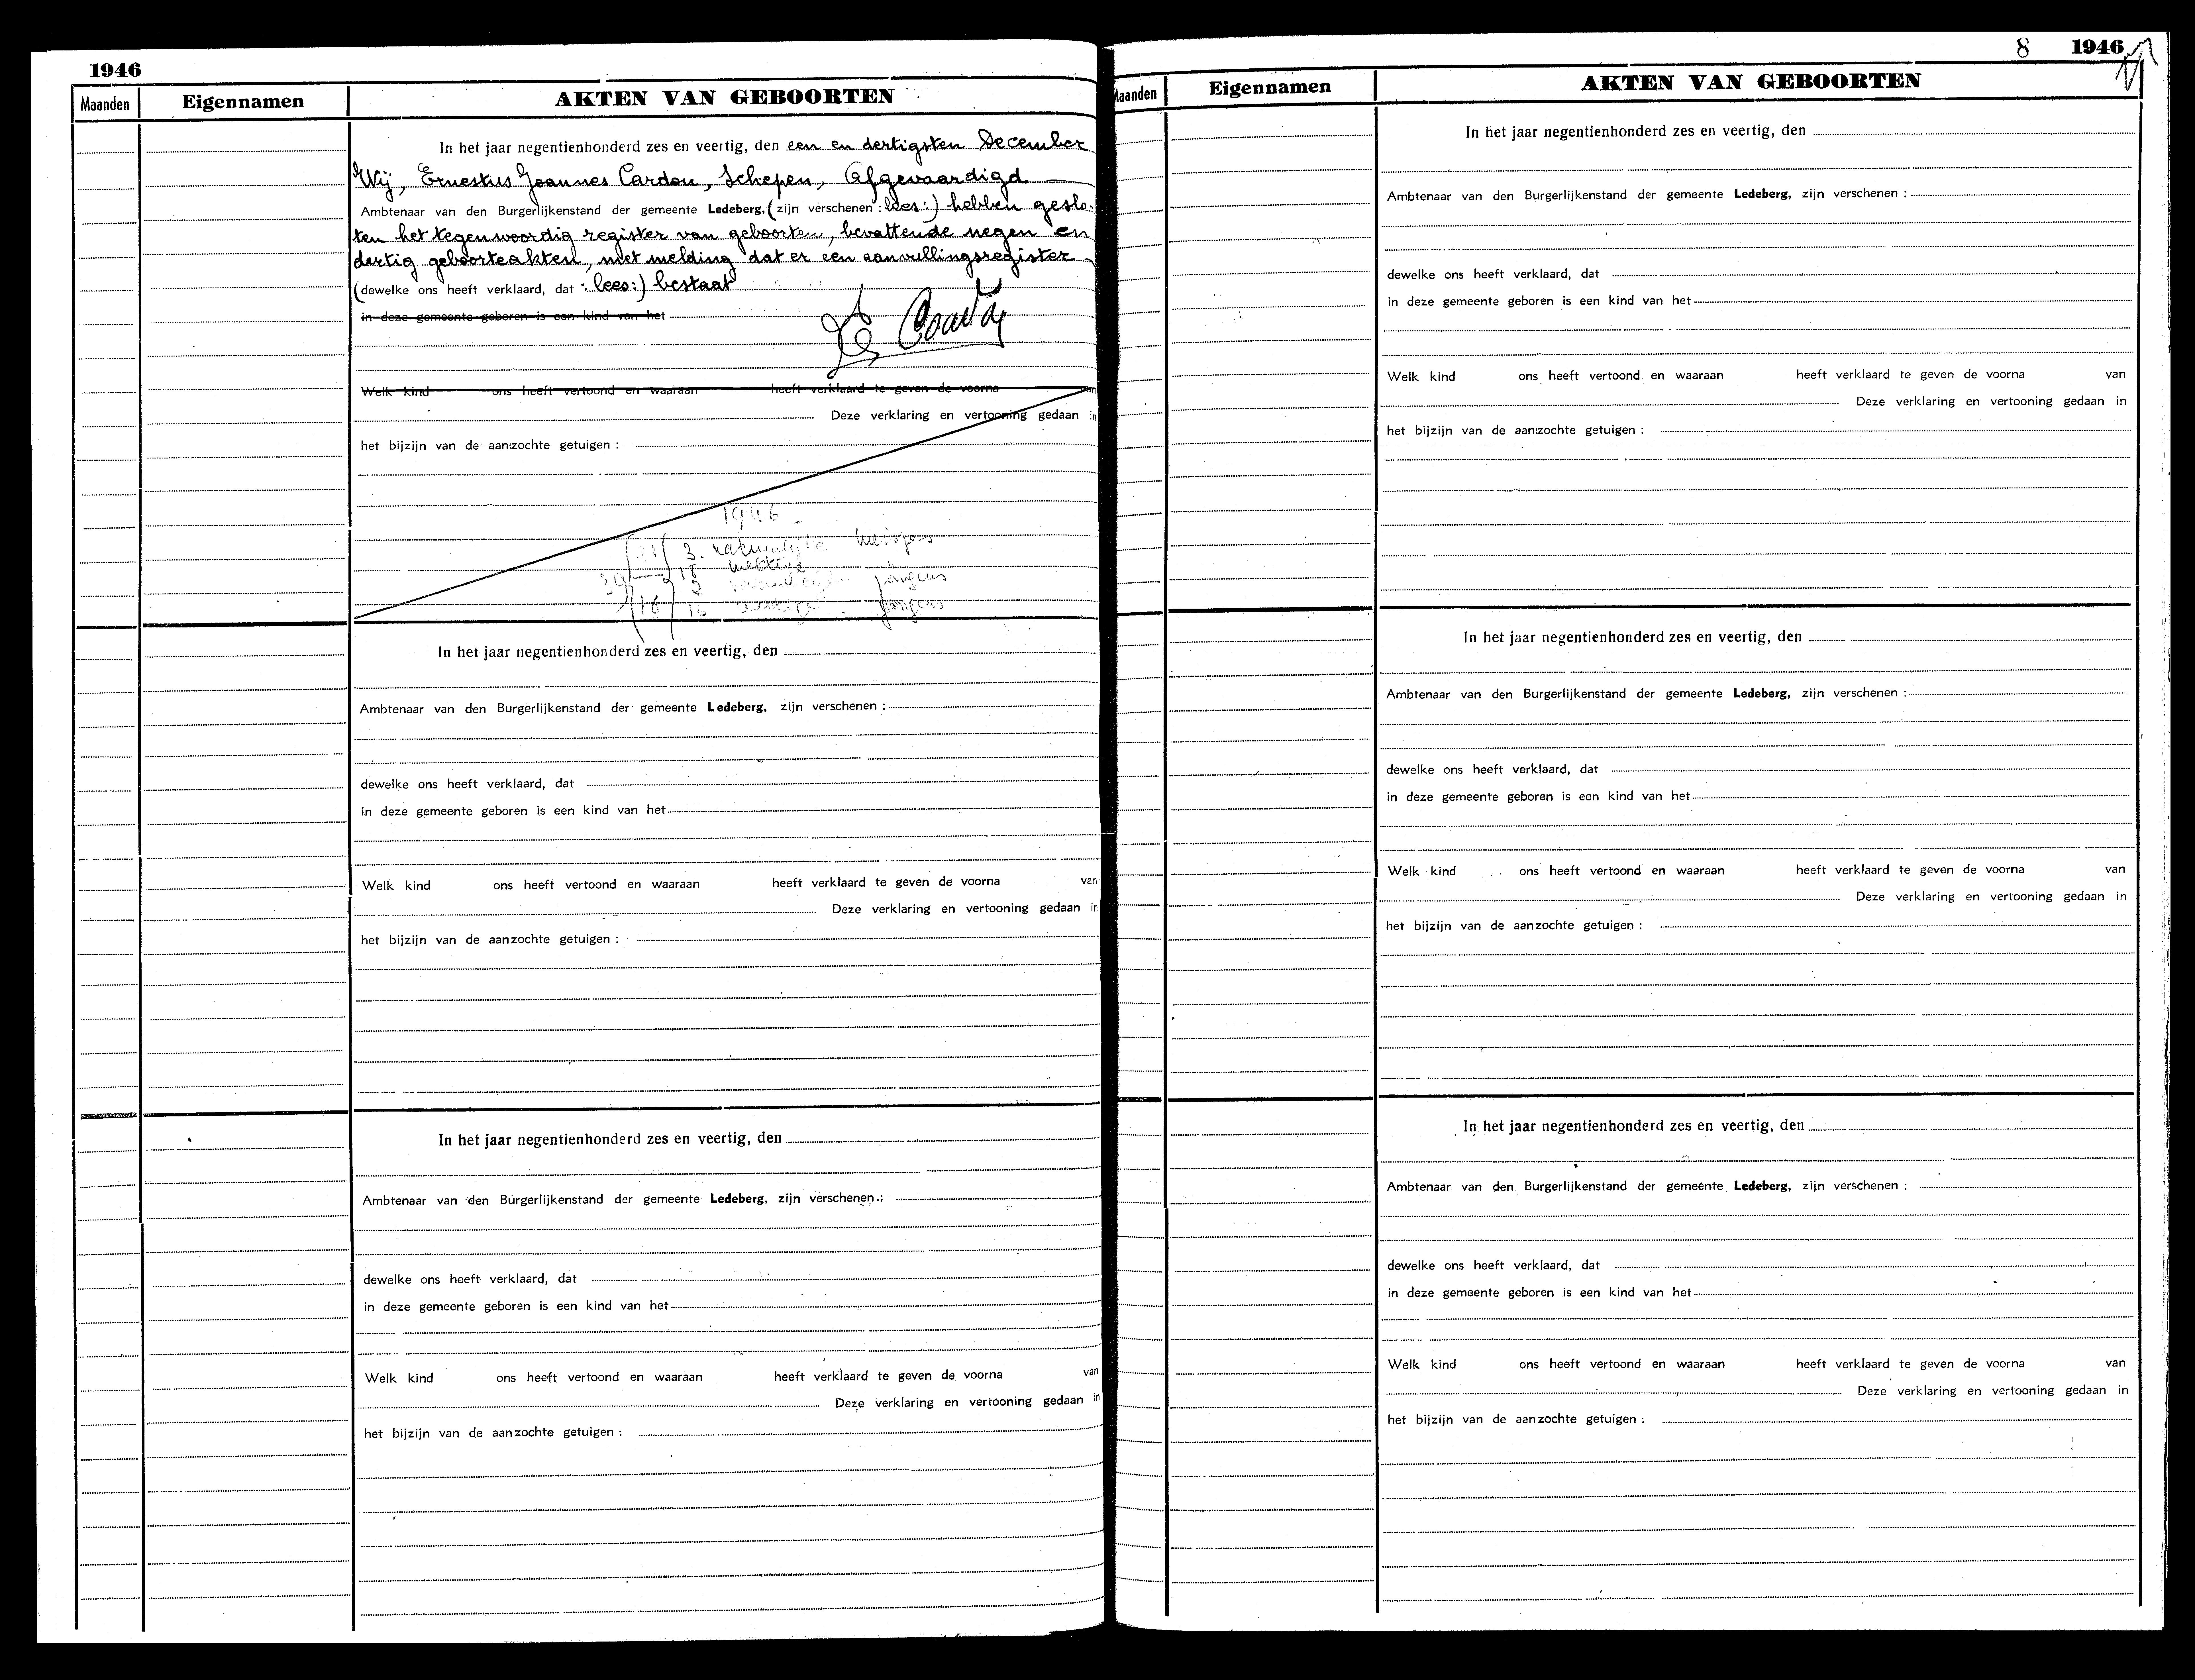 1946
Maanden
Eigennamen
AKTEN VAN GEBOORTEN
In het jaar negentienhonderd zes en veertig, den een en dertigsten December
Wij, Ernestus Joannes Cardon, Schepen, Afgevaardigd
Ambtenaar van den Burgerlijkenstand der gemeente Ledeberg, (zijn verschenen : lees:) hebben geslo-
ten het tegenwoordig register van geboorten, bevattende negen en
dertig geboorteakten, met melding dat er een aanvullingsregister
(dewelke ons heeft verklaard, dat : lees:) bestaat
in deze gemeente geboren is een kind van het
Welk kind ons heeft vertoond en waaraan heeft verklaard te geven de voorna van
Deze verklaring en vertooning gedaan in
het bijzijn van de aanzochte getuigen :
1946
3. natuurlijke meisjes
39 18 wettige
3 jongens
18 jongens
In het jaar negentienhonderd zes en veertig, den
Ambtenaar van den Burgerlijkenstand der gemeente Ledeberg, zijn verschenen :
dewelke ons heeft verklaard, dat
in deze gemeente geboren is een kind van het
Welk kind ons heeft vertoond en waaraan heeft verklaard te geven de voorna van
Deze verklaring en vertooning gedaan in
het bijzijn van de aanzochte getuigen :
In het jaar negentienhonderd zes en veertig, den
Ambtenaar van den Burgerlijkenstand der gemeente Ledeberg, zijn verschenen :
dewelke ons heeft verklaard, dat
in deze gemeente geboren is een kind van het
Welk kind ons heeft vertoond en waaraan heeft verklaard te geven de voorna van
Deze verklaring en vertooning gedaan in
het bijzijn van de aanzochte getuigen :
8 1946
Maanden
Eigennamen
AKTEN VAN GEBOORTEN
In het jaar negentienhonderd zes en veertig, den
Ambtenaar van den Burgerlijkenstand der gemeente Ledeberg, zijn verschenen :
dewelke ons heeft verklaard, dat
in deze gemeente geboren is een kind van het
Welk kind ons heeft vertoond en waaraan heeft verklaard te geven de voorna van
Deze verklaring en vertooning gedaan in
het bijzijn van de aanzochte getuigen :
In het jaar negentienhonderd zes en veertig, den
Ambtenaar van den Burgerlijkenstand der gemeente Ledeberg, zijn verschenen :
dewelke ons heeft verklaard, dat
in deze gemeente geboren is een kind van het
Welk kind ons heeft vertoond en waaraan heeft verklaard te geven de voorna van
Deze verklaring en vertooning gedaan in
het bijzijn van de aanzochte getuigen :
In het jaar negentienhonderd zes en veertig, den
Ambtenaar van den Burgerlijkenstand der gemeente Ledeberg, zijn verschenen :
dewelke ons heeft verklaard, dat
in deze gemeente geboren is een kind van het
Welk kind ons heeft vertoond en waaraan heeft verklaard te geven de voorna van
Deze verklaring en vertooning gedaan in
het bijzijn van de aanzochte getuigen :